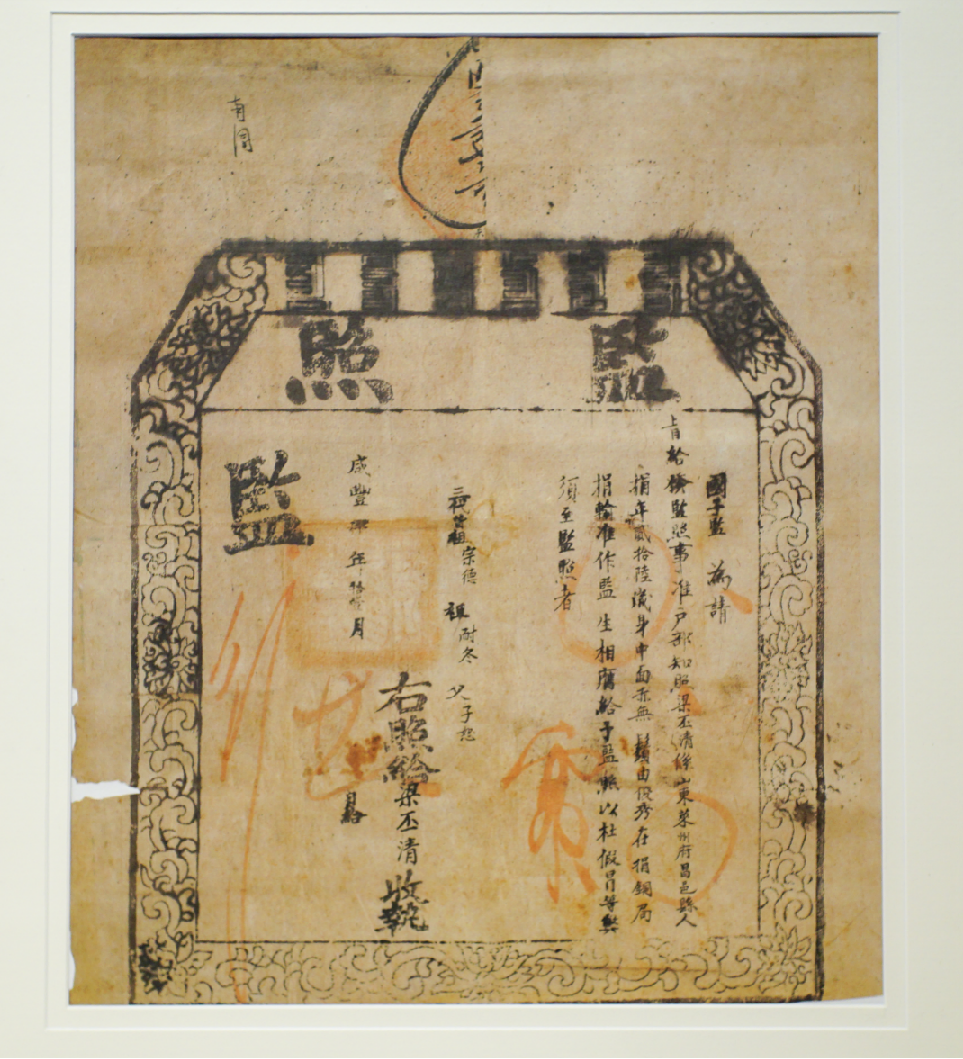 監照
國子監 為請
旨給換監照事准戶部知照梁丕清係山東萊州府昌邑縣人
捐年貳拾陸歲身中面赤無鬚由俊秀在捐銅局
捐輸准作監生相應給予監照以杜假冒等弊
須至監照者
三代曾祖宗德 祖耐冬 父子起
右照給梁丕清收執
咸豐 年 月
監